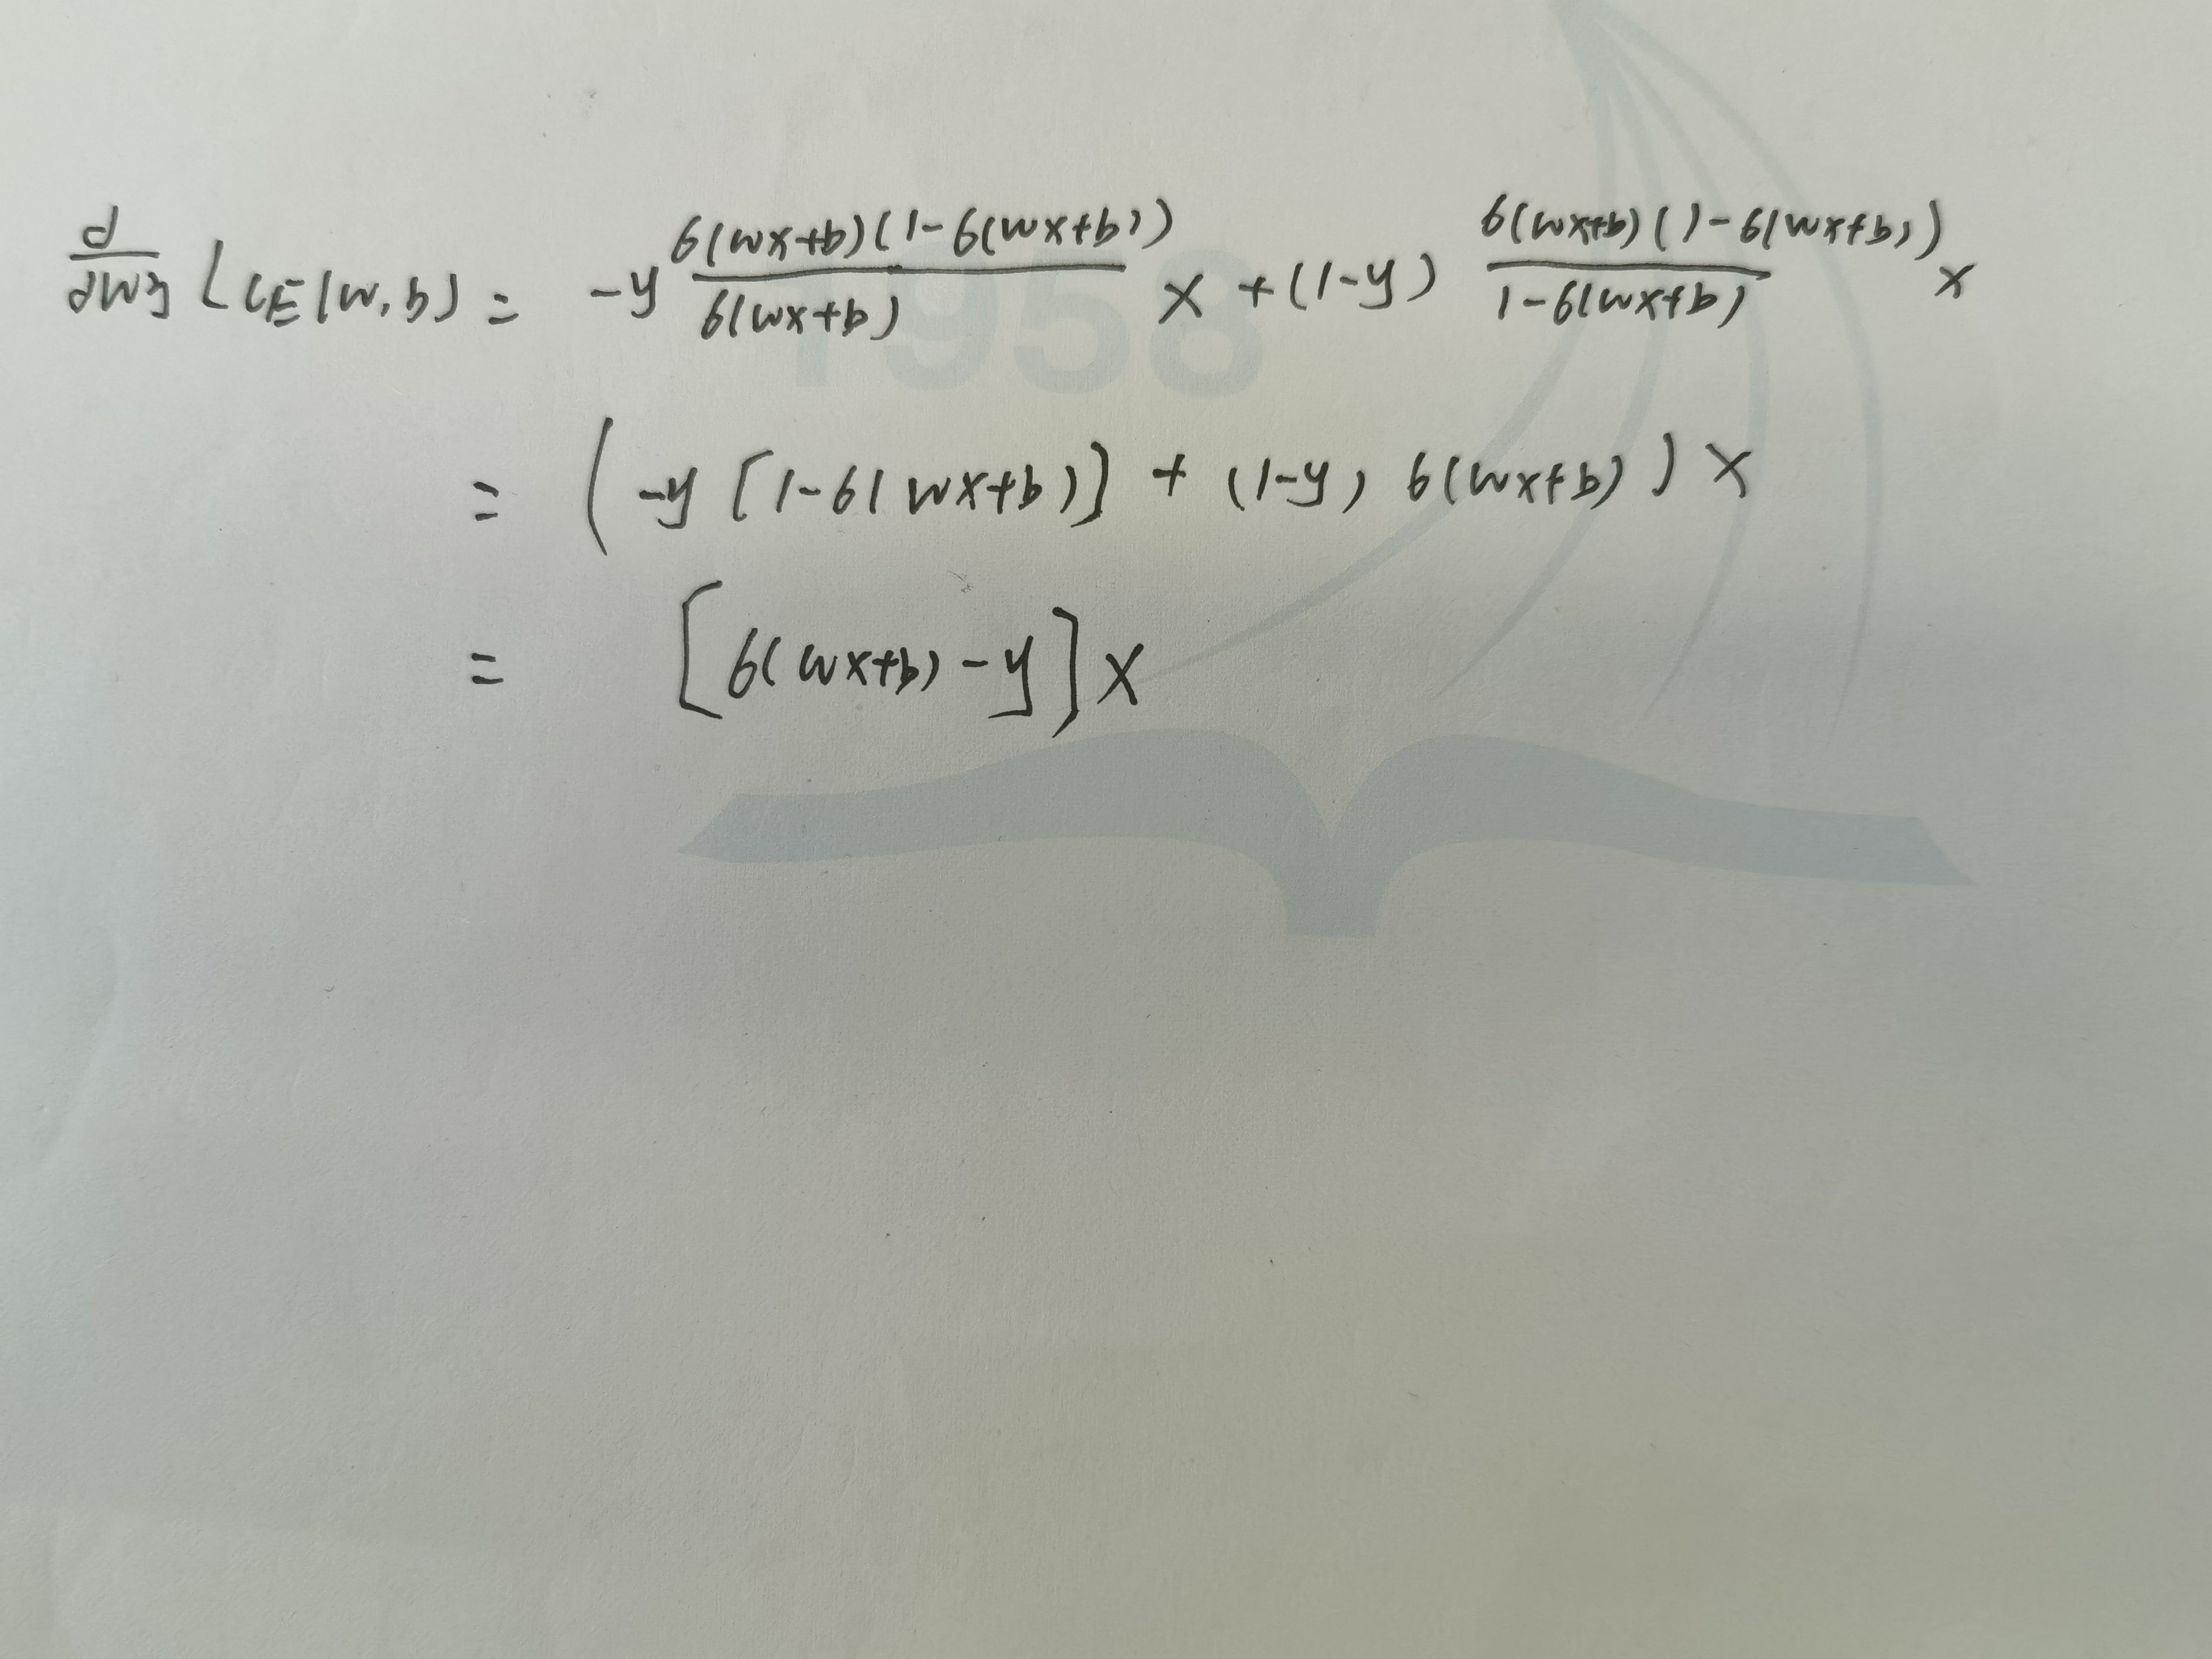 d/dwj LCE(w,b) = -y σ(wx+b)(1-σ(wx+b))/σ(wx+b) x + (1-y) σ(wx+b)(1-σ(wx+b))/1-σ(wx+b) x
= (-y[1-σ(wx+b)] + (1-y) σ(wx+b)) x
= [σ(wx+b) - y] x
1958